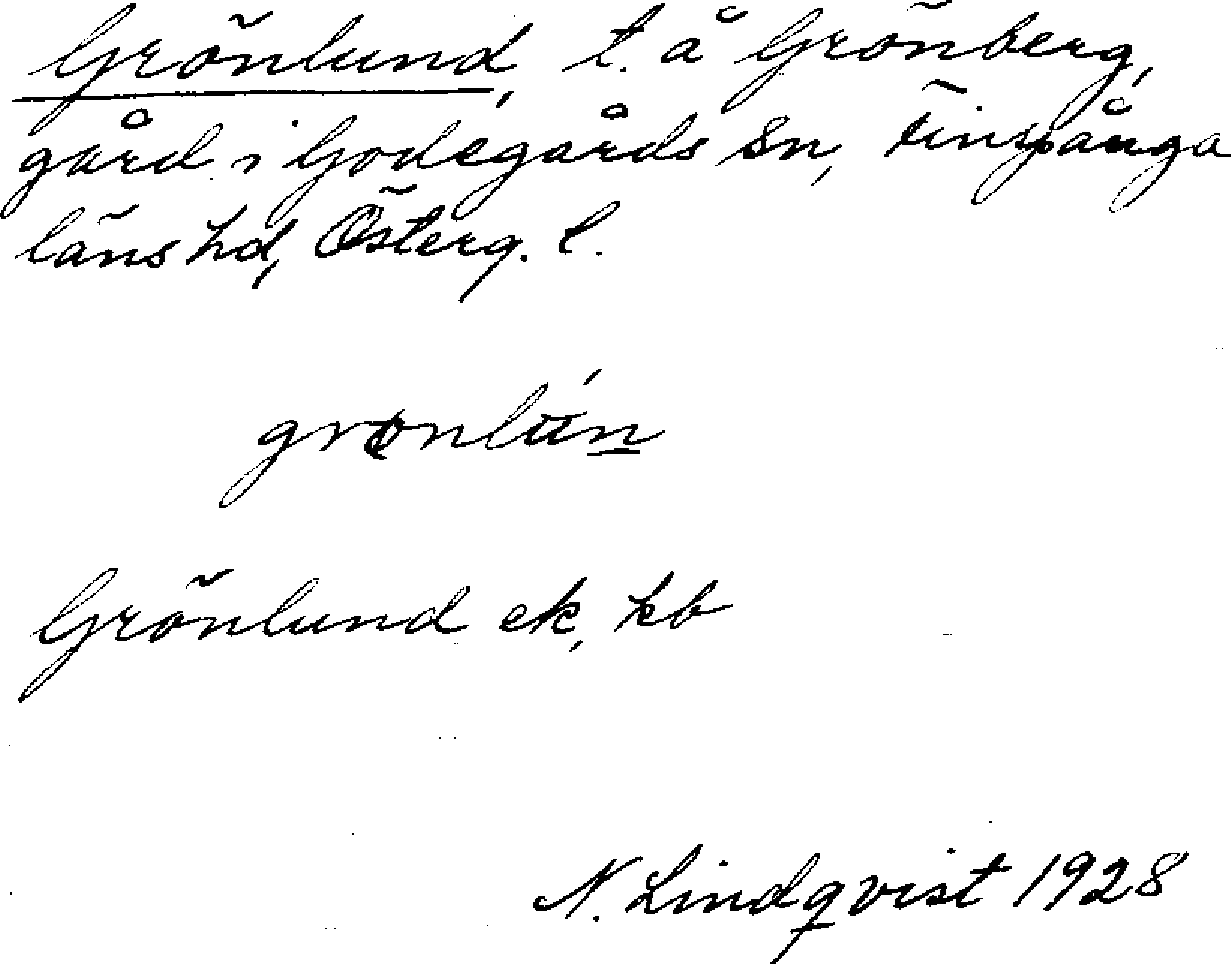 Grönlund, t. å Grönberg,
gård i Godegårds sn, Finspånga
läns hd, Österg. l.
Grönlund ek, kb
N. Lindqvist 1928